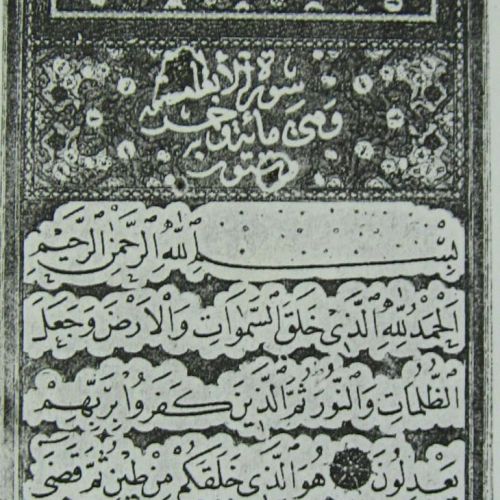 سورة
وهى مائة
بسم الله الرحمن الرحيم
اَلْحَمْدُ لِلّٰهِ الَّذٖى خَلَقَ السَّمٰوَاتِ وَالْاَرْضَ وَجَعَلَ
الظُّلُمَاتِ وَالنُّورَ ثُمَّ الَّذٖينَ كَفَرُوا بِرَبِّهِمْ
يَعْدِلُونَ هُوَ الَّذٖى خَلَقَكُمْ مِنْ طٖينٍ ثُمَّ قَضٰى